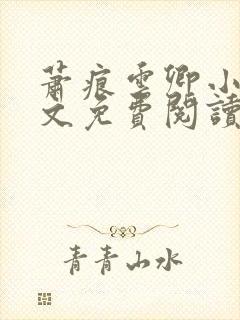 蕭痕雲卿小
文免費閱讀
青青山水